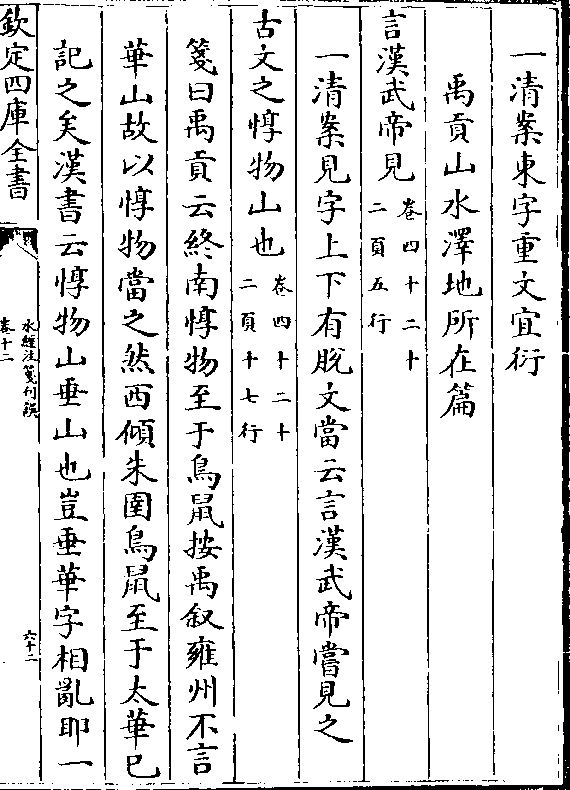 一清案東字重文宜衍
禹貢山水澤地所在篇
言漢武帝見卷四十二十二頁五行
一清案見字上下有脫文當云言漢武帝嘗見之
古文之惇物山也卷四十二十二頁十七行
箋曰禹貢云終南惇物至于鳥鼠按禹叙雍州不言
華山故以惇物當之然西傾朱圉鳥鼠至于太華已
記之矣漢書云惇物山垂山也豈垂華字相亂耶一
欽定四庫全書
水經注箋刋誤
卷十二
六十二